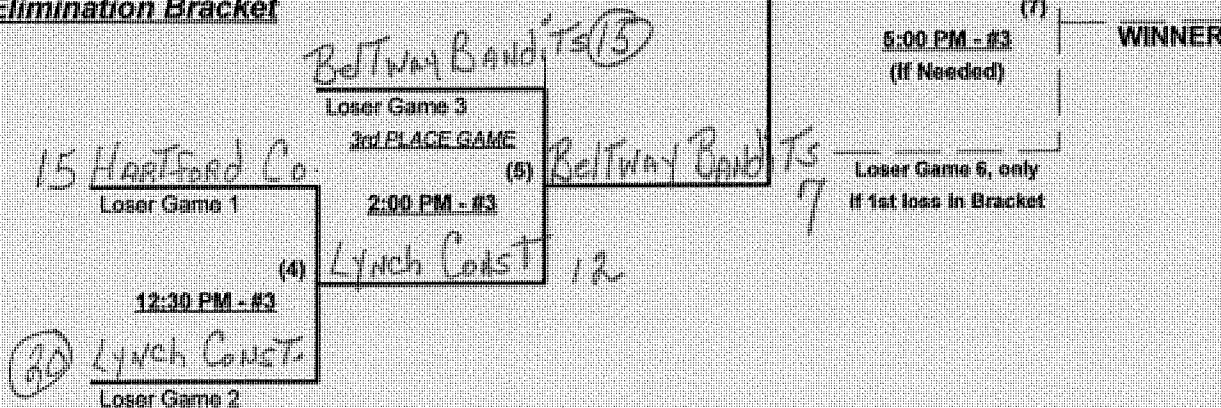 Elimination Bracket
(7)
WINNER
5:00 PM - #3
(If Needed)
BelTway BANdiTs 15
Loser Game 3
3rd PLACE GAME
(5)
2:00 PM - #3
BelTway BANdiTs
7
Loser Game 6, only
If 1st loss in Bracket
15 HARTFoRD Co.
Loser Game 1
(4)
12:30 PM - #3
LyNch CoNsT 12
20 LyNch CoNsT.
Loser Game 2